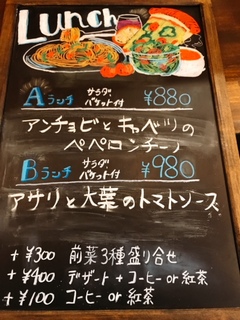 Lunch
Aランチ サラダ バケット付 ¥880
アンチョビとキャベツの
ペペロンチーノ
Bランチ サラダ バケット付 ¥980
アサリと大葉のトマトソース
+¥300 前菜3種盛り合せ
+¥400 デザート+コーヒーor紅茶
+¥100 コーヒーor紅茶